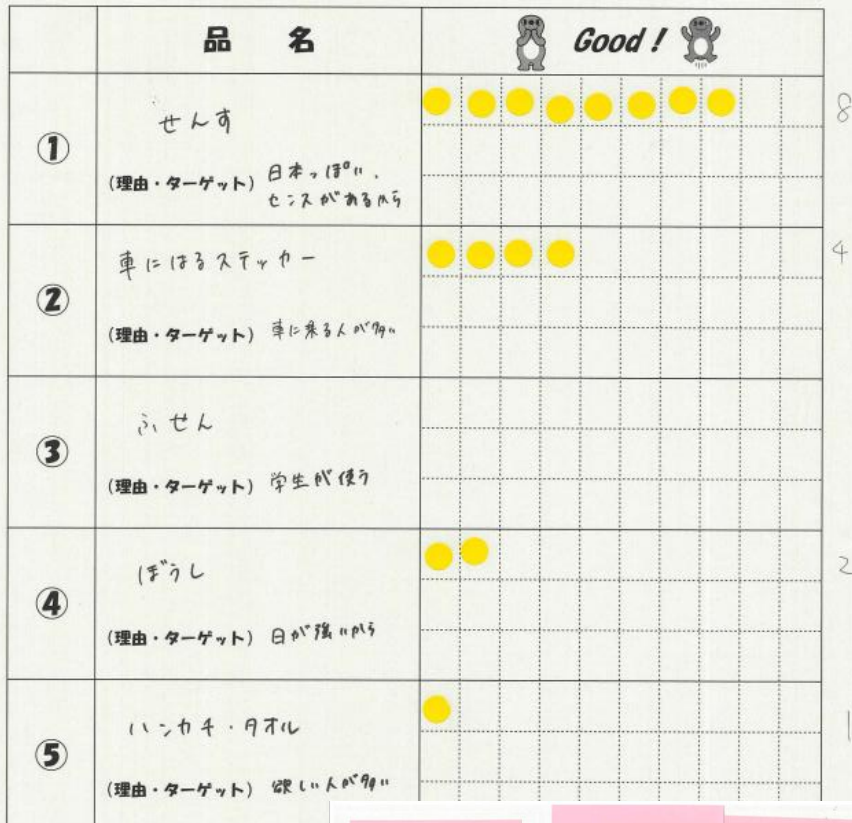 品 名
Good!
①
せんす
(理由・ターゲット) 日本っぽい、
センスがあるから
8
②
車にはるステッカー
(理由・ターゲット) 車に乗る人が多い
4
③
ふせん
(理由・ターゲット) 学生が使う
④
ぼうし
(理由・ターゲット) 日が強いから
2
⑤
ハンカチ・タオル
(理由・ターゲット) 欲しい人が多い
1